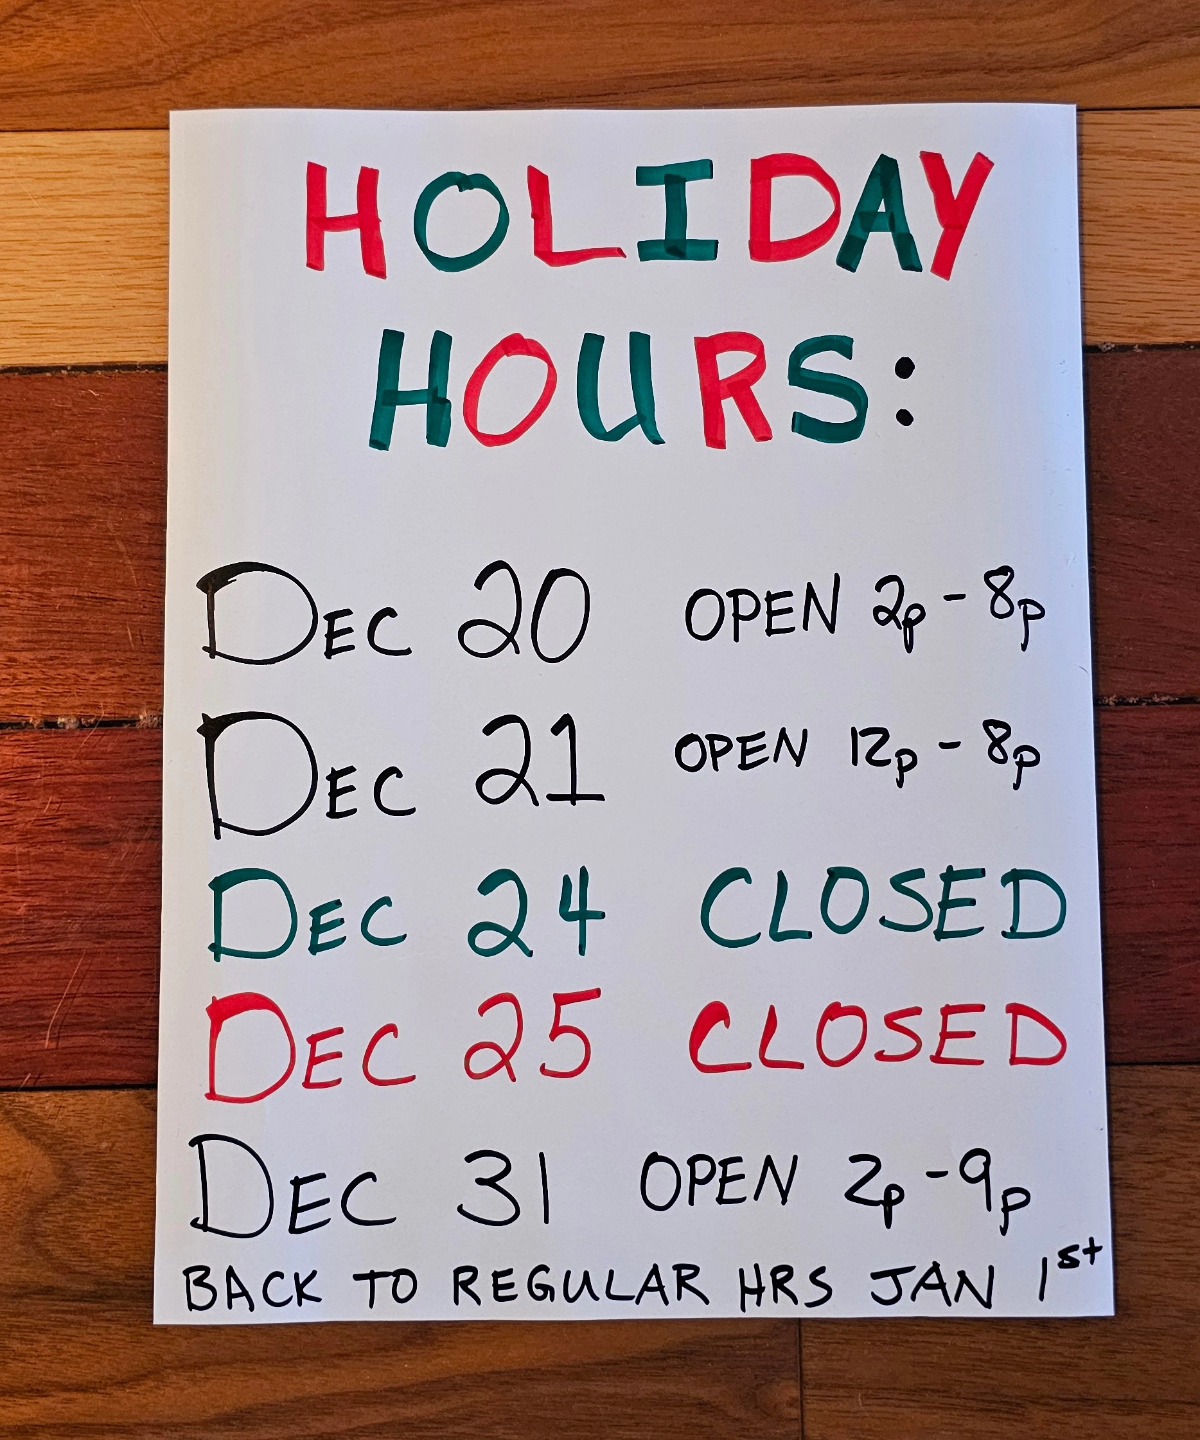 HOLIDAY
HOURS:
DEC 20 OPEN 2p - 8p
DEC 21 OPEN 12p - 8p
DEC 24 CLOSED
DEC 25 CLOSED
DEC 31 OPEN 2p - 9p
BACK TO REGULAR HRS JAN 1st